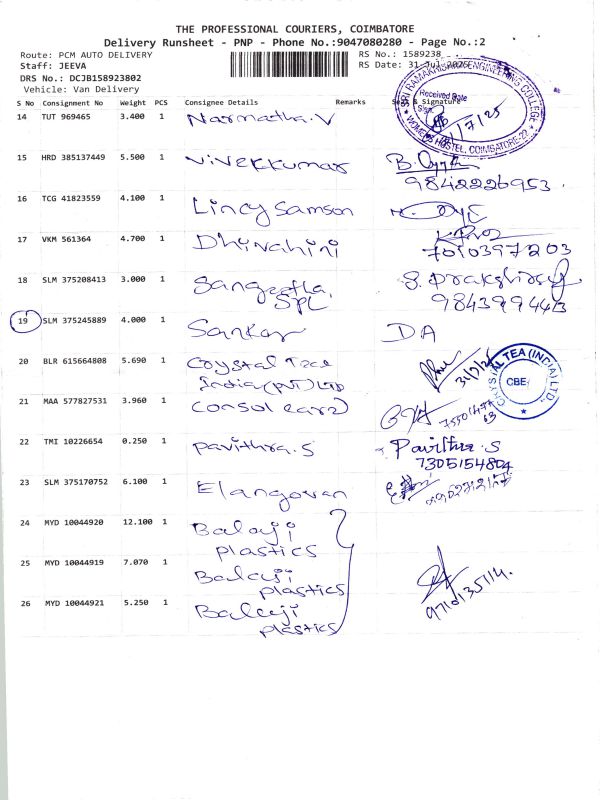 THE PROFESSIONAL COURIERS, COIMBATORE
Delivery Runsheet - PNP - Phone No.:9047080280 - Page No.:2
Route: PCM AUTO DELIVERY
RS No.: 1589238
Staff: JEEVA
RS Date: 31 Jul 2025
DRS No.: DCJB158923802
Vehicle: Van Delivery
S No Consignment No Weight PCS Consignee Details Remarks Seal & Signature
SRI RAMAKRISHNA ENGINEERING COLLEGE
Received Date
Sign
WOMENS HOSTEL, COIMBATORE-22
14 TUT 969465 3.400 1 Narmatha.V
15 HRD 385137449 5.500 1 Nivekkumar
9842226953
16 TCG 41823559 4.100 1 Lincy Samson
17 VKM 561364 4.700 1 Dhivahini
7010397203
18 SLM 375208413 3.000 1 Sangeetha
SPL
19 SLM 375245889 4.000 1 Sankar DA
20 BLR 615664808 5.690 1 Crystal Tea
India (PVT) LTD
CRYSTAL TEA (INDIA) LTD.
CBE
21 MAA 577827531 3.960 1 Consol
22 TMI 10226654 0.250 1 Pavithra.S Pavithra.S
7305154804
23 SLM 375170752 6.100 1 Elangovan
24 MYD 10044920 12.100 1 Balaji
plastics
25 MYD 10044919 7.070 1 Balaji
plastics
26 MYD 10044921 5.250 1 Balaji
plastics
9710135114.